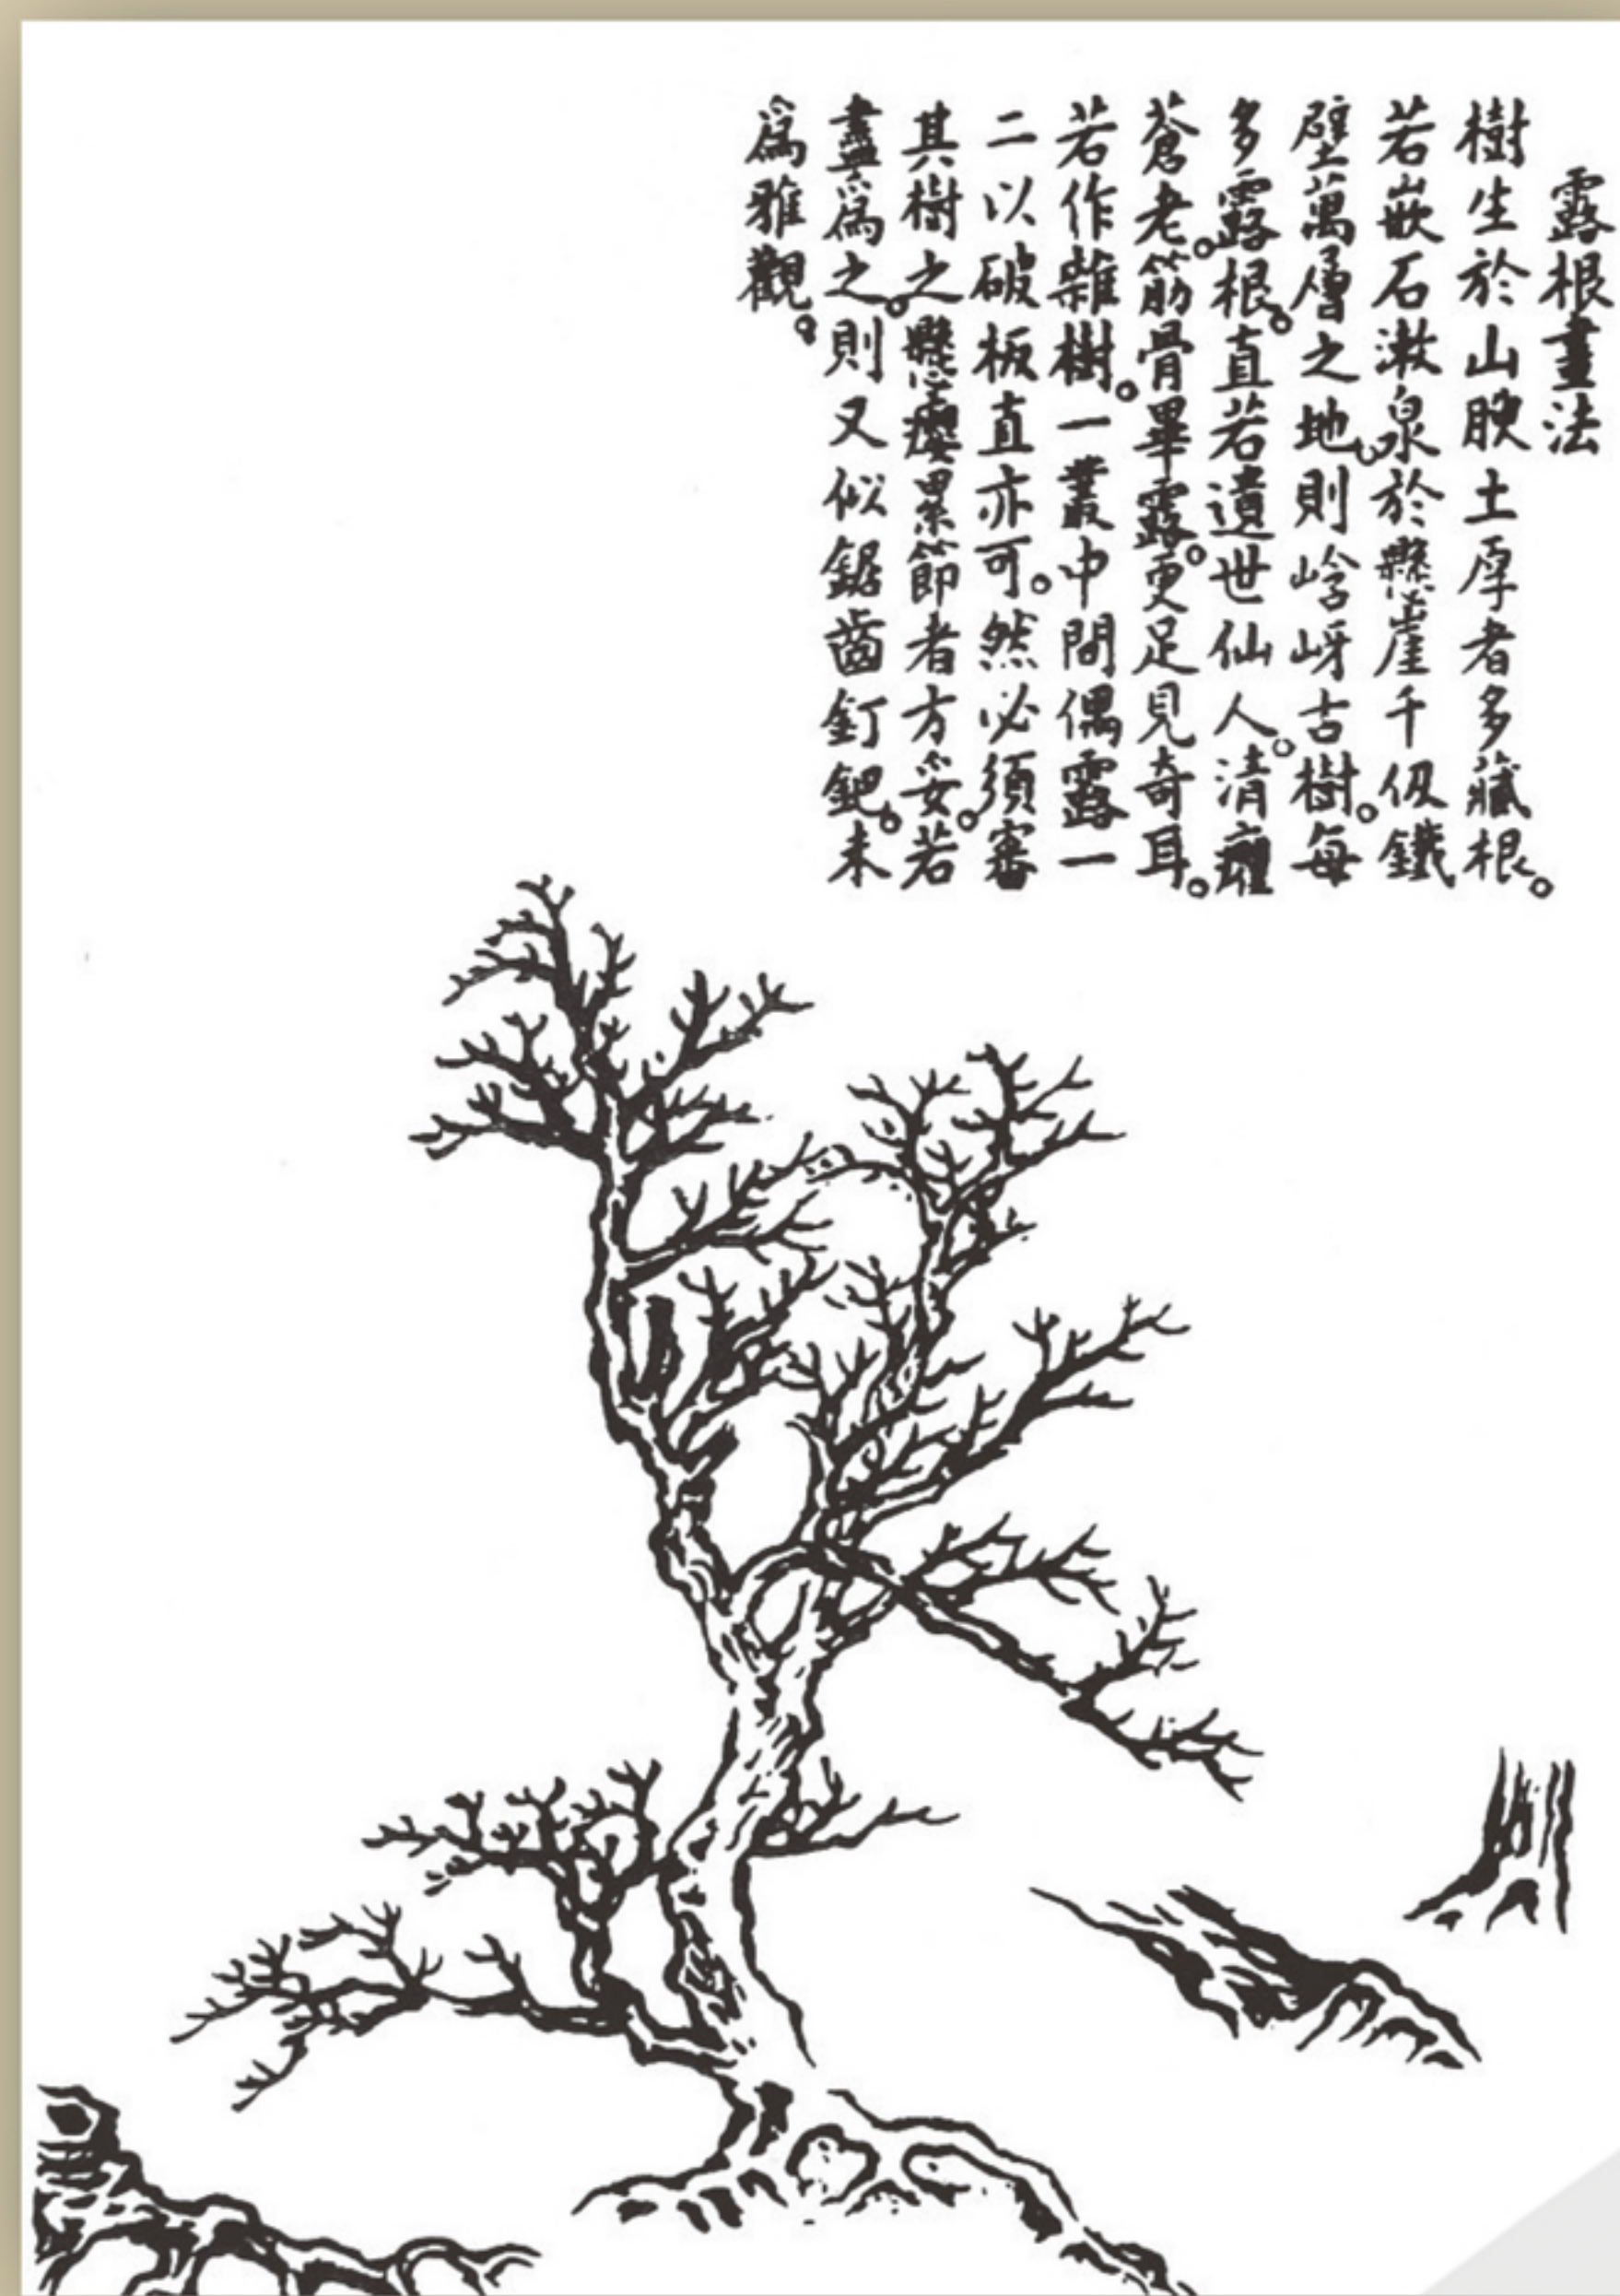 露根畫法
樹生於山腴土厚者多藏根。
若嵌石漱泉。於懸崖千仭鐵
壁萬層之地則崯岈古樹。每
多露根。直若遺世仙人。清癯
蒼老。筋骨畢露。更足見奇耳。
若作雜樹。一叢中間偶露一
二以破板直亦可。然必須審
其樹之懸癭累節者方妥。若
盡爲之。則又似鋸齒釘鈀。未
爲雅觀。